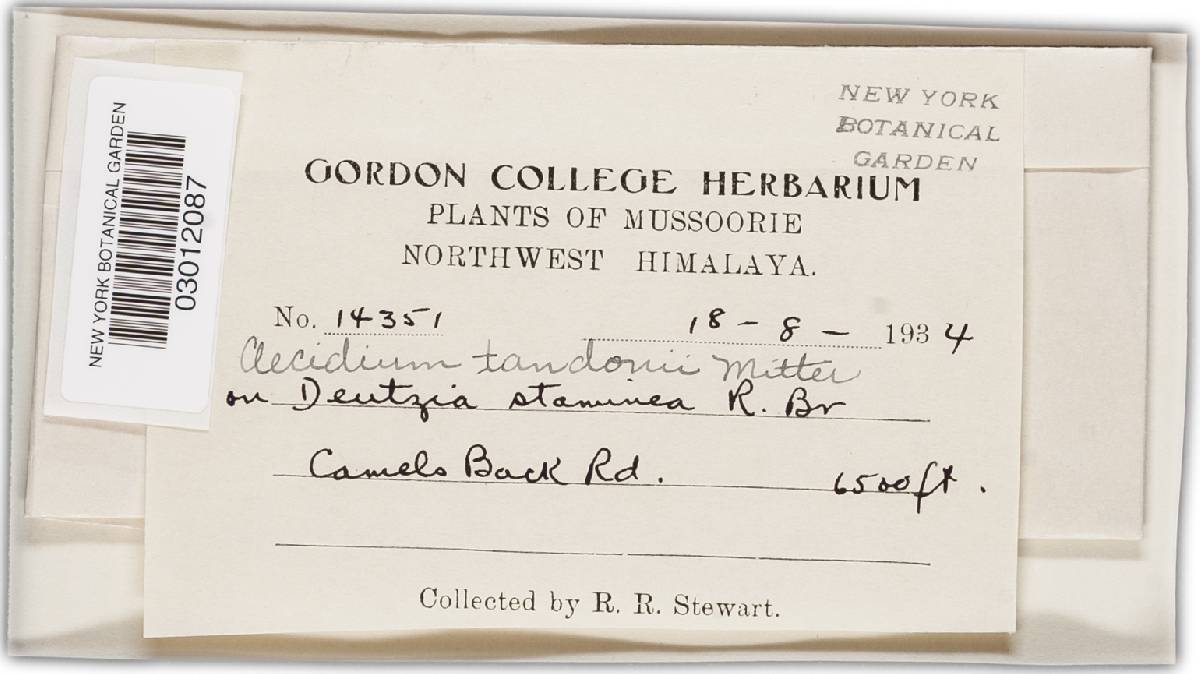 NEW YORK BOTANICAL GARDEN
03012087
NEW YORK
BOTANICAL
GARDEN
GORDON COLLEGE HERBARIUM
PLANTS OF MUSSOORIE
NORTHWEST HIMALAYA.
No. 14351 18-8-1934
Aecidium tandonii Mitter
on Deutzia staminea R. Br
Camels Back Rd. 6500 ft.
Collected by R. R. Stewart.